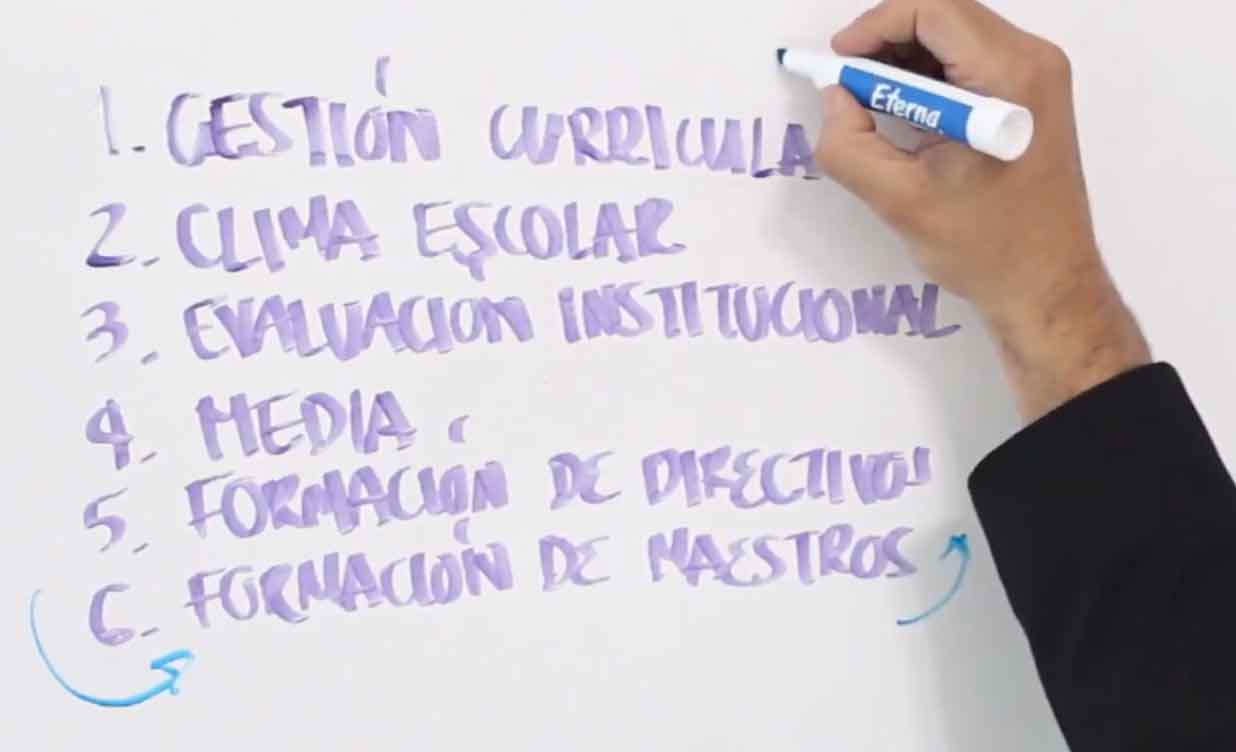 1. GESTIÓN CURRICULA
2. CLIMA ESCOLAR
3. EVALUACION INSTITUCIONAL
4. MEDIA
5. FORMACIÓN DE DIRECTIVOS
6. FORMACIÓN DE MAESTROS
Eterna